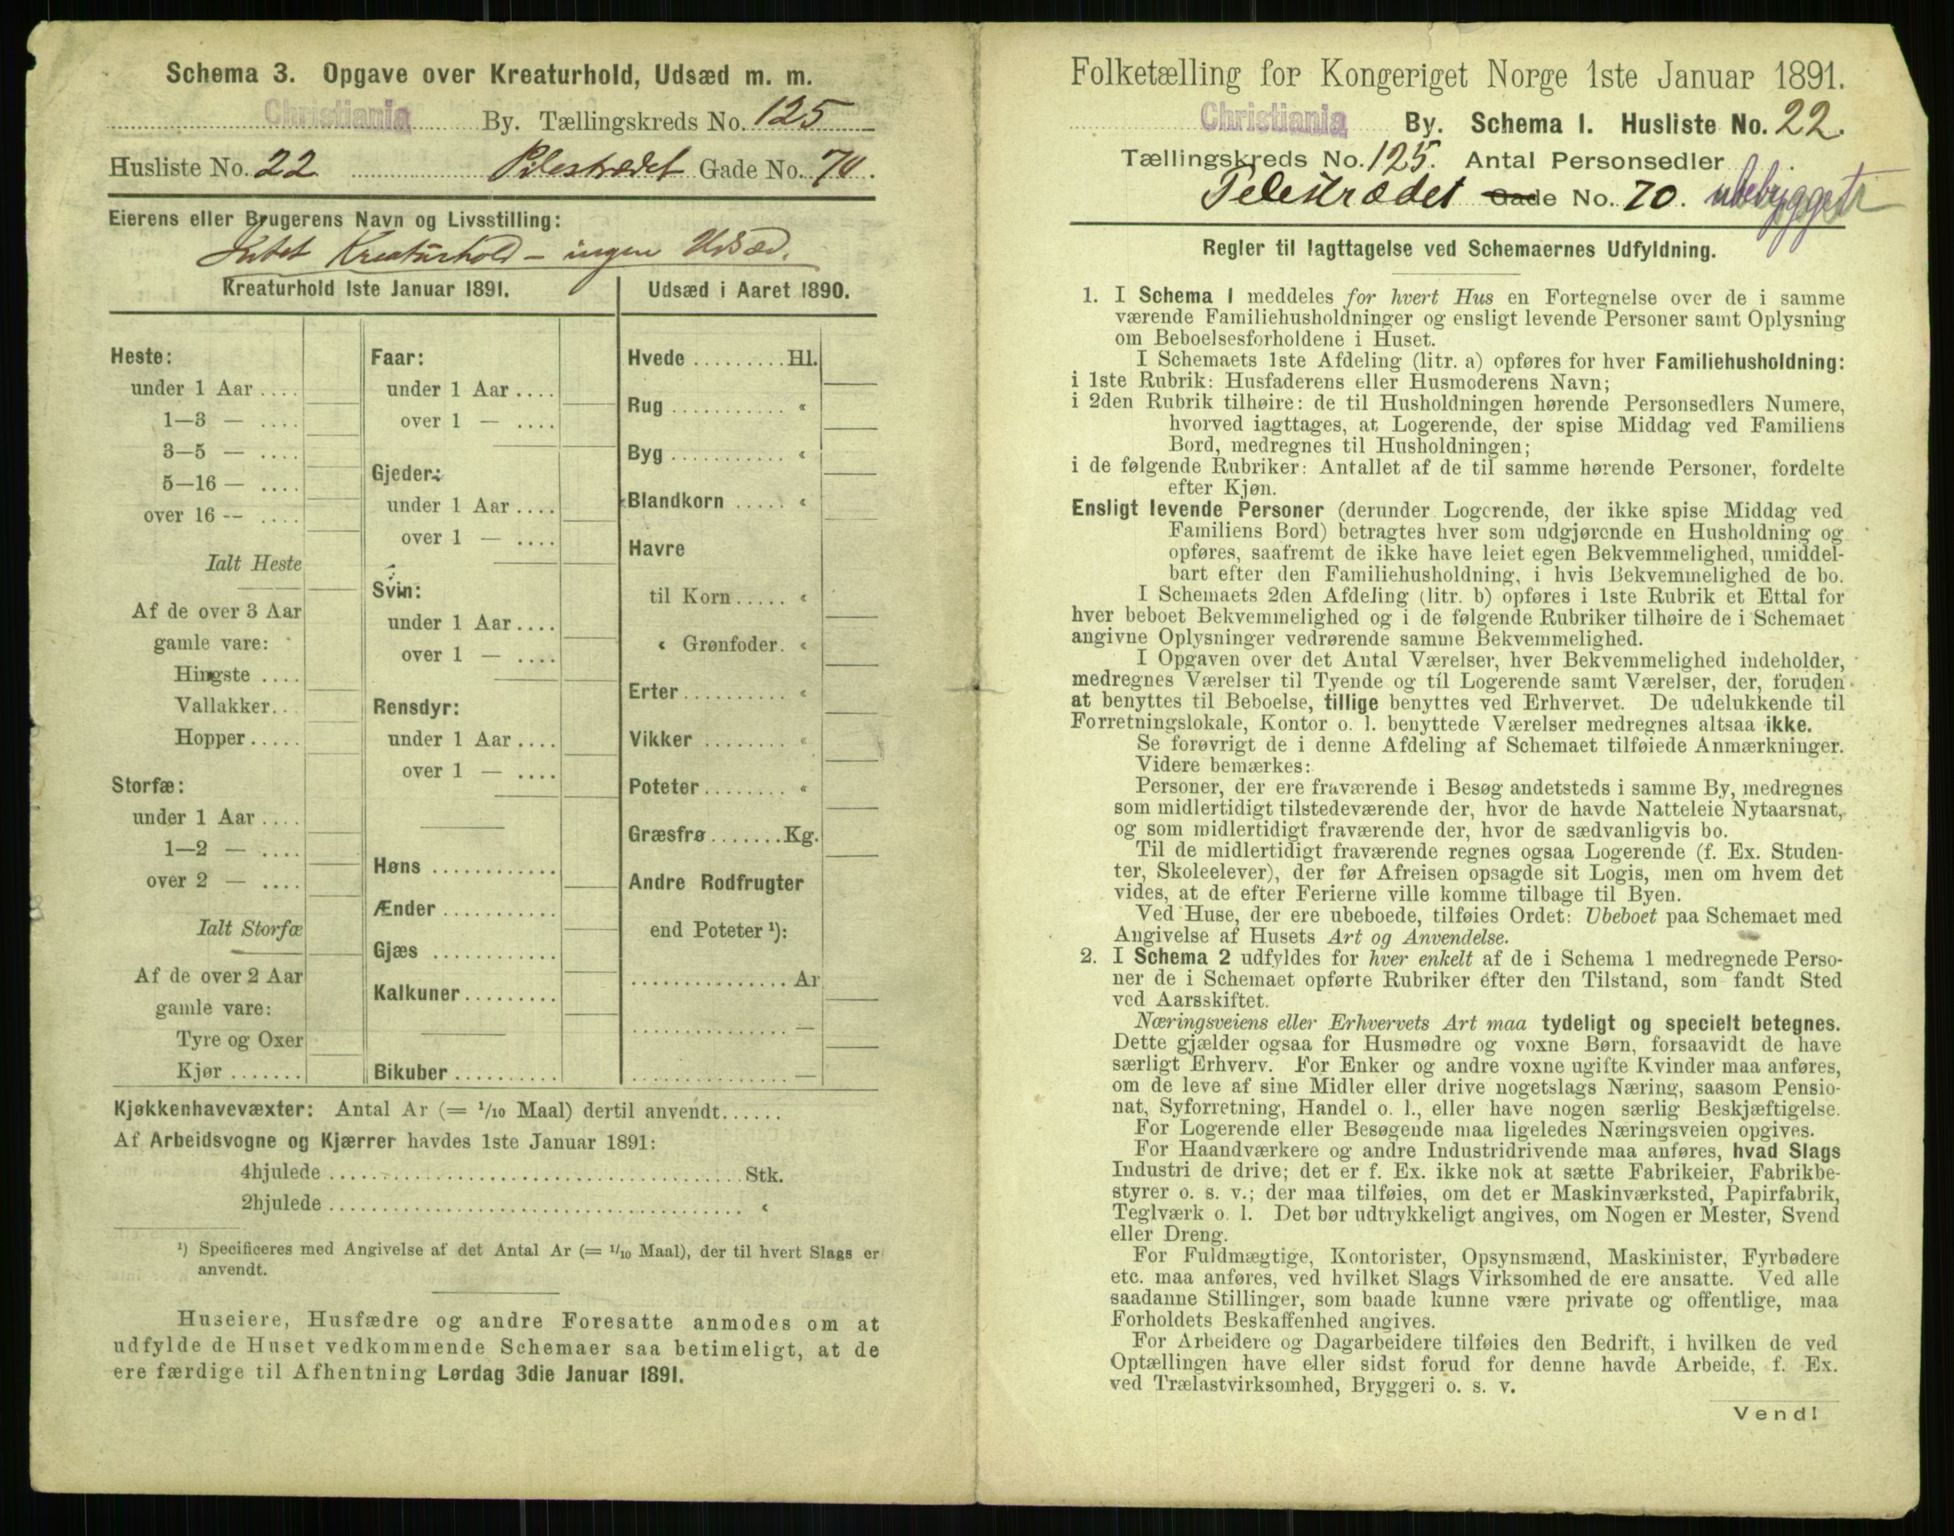 Schema 3. Opgave over Kreaturhold, Udsæd m. m.
Christiania By. Tællingskreds No. 125
Husliste No. 22 Pilestrædet Gade No. 70.
Eierens eller Brugerens Navn og Livsstilling:
Intet Kreaturhold – ingen Udsæd.
Kreaturhold 1ste Januar 1891.
Heste:
under 1 Aar ....
1—3 — ....
3—5 — ....
5—16 — ....
over 16 — ....
Ialt Heste
Af de over 3 Aar
gamle vare:
Hingste ....
Vallakker...
Hopper.....
Storfæ:
under 1 Aar ....
1—2 — ....
over 2 — ....
Ialt Storfæ
Af de over 2 Aar
gamle vare:
Tyre og Oxer
Kjør .......
Faar:
under 1 Aar ....
over 1 — ....
Gjeder:
under 1 Aar ....
over 1 — ....
Svin:
under 1 Aar ....
over 1 — ....
Rensdyr:
under 1 Aar ....
over 1 — ....
Høns ............
Ænder ...........
Gjæs ............
Kalkuner.........
Bikuber ..........
Udsæd i Aaret 1890.
Hvede .........Hl.
Rug ........... «
Byg ........... «
Blandkorn ..... «
Havre
til Korn..... «
« Grønfoder. «
Erter.......... «
Vikker ........ «
Poteter........ «
Græsfrø.......Kg.
Andre Rodfrugter
end Poteter ¹):
...............Ar
............... —
............... —
Kjøkkenhavevæxter: Antal Ar (= 1/10 Maal) dertil anvendt......
Af Arbeidsvogne og Kjærrer havdes 1ste Januar 1891:
4hjulede ........................................Stk.
2hjulede ........................................ «
¹) Specificeres med Angivelse af det Antal Ar (= 1/10 Maal), der til hvert Slags er
anvendt.
Huseiere, Husfædre og andre Foresatte anmodes om at
udfylde de Huset vedkommende Schemaer saa betimeligt, at de
ere færdige til Afhentning Lørdag 3die Januar 1891.
Folketælling for Kongeriget Norge 1ste Januar 1891.
Christiania By. Schema 1. Husliste No. 22.
Tællingskreds No. 125. Antal Personsedler .
Pelestrædet Gade No. 70. ubebygget
Regler til Iagttagelse ved Schemaernes Udfyldning.
1. I Schema 1 meddeles for hvert Hus en Fortegnelse over de i samme
værende Familiehusholdninger og ensligt levende Personer samt Oplysning
om Beboelsesforholdene i Huset.
I Schemaets 1ste Afdeling (litr. a) opføres for hver Familiehusholdning:
i 1ste Rubrik: Husfaderens eller Husmoderens Navn;
i 2den Rubrik tilhøire: de til Husholdningen hørende Personsedlers Numere,
hvorved iagttages, at Logerende, der spise Middag ved Familiens
Bord, medregnes til Husholdningen;
i de følgende Rubriker: Antallet af de til samme hørende Personer, fordelte
efter Kjøn.
Ensligt levende Personer (derunder Logerende, der ikke spise Middag ved
Familiens Bord) betragtes hver som udgjørende en Husholdning og
opføres, saafremt de ikke have leiet egen Bekvemmelighed, umiddel-
bart efter den Familiehusholdning, i hvis Bekvemmelighed de bo.
I Schemaets 2den Afdeling (litr. b) opføres i 1ste Rubrik et Ettal for
hver beboet Bekvemmelighed og i de følgende Rubriker tilhøire de i Schemaet
angivne Oplysninger vedrørende samme Bekvemmelighed.
I Opgaven over det Antal Værelser, hver Bekvemmelighed indeholder,
medregnes Værelser til Tyende og til Logerende samt Værelser, der, foruden
at benyttes til Beboelse, tillige benyttes ved Erhvervet. De udelukkende til
Forretningslokale, Kontor o. l. benyttede Værelser medregnes altsaa ikke.
Se forøvrigt de i denne Afdeling af Schemaet tilføiede Anmærkninger.
Videre bemærkes:
Personer, der ere fraværende i Besøg andetsteds i samme By, medregnes
som midlertidigt tilstedeværende der, hvor de havde Natteleie Nytaarsnat,
og som midlertidigt fraværende der, hvor de sædvanligvis bo.
Til de midlertidigt fraværende regnes ogsaa Logerende (f. Ex. Studen-
ter, Skoleelever), der før Afreisen opsagde sit Logis, men om hvem det
vides, at de efter Ferierne ville komme tilbage til Byen.
Ved Huse, der ere ubeboede, tilføies Ordet: Ubeboet paa Schemaet med
Angivelse af Husets Art og Anvendelse.
2. I Schema 2 udfyldes for hver enkelt af de i Schema 1 medregnede Perso-
ner de i Schemaet opførte Rubriker efter den Tilstand, som fandt Sted
ved Aarsskiftet.
Næringsveiens eller Erhvervets Art maa tydeligt og specielt betegnes.
Dette gjælder ogsaa for Husmødre og voxne Børn, forsaavidt de have
særligt Erhverv. For Enker og andre voxne ugifte Kvinder maa anføres,
om de leve af sine Midler eller drive nogetslags Næring, saasom Pensio-
nat, Syforretning, Handel o. l., eller have nogen særlig Beskjæftigelse.
For Logerende eller Besøgende maa ligeledes Næringsveien opgives.
For Haandværkere og andre Industridrivende maa anføres, hvad Slags
Industri de drive; det er f. Ex. ikke nok at sætte Fabrikeier, Fabrikbe-
styrer o. s. v.; der maa tilføies, om det er Maskinværksted, Papirfabrik,
Teglværk o. l. Det bør udtrykkeligt angives, om Nogen er Mester, Svend
eller Dreng.
For Fuldmægtige, Kontorister, Opsynsmænd, Maskinister, Fyrbødere
etc. maa anføres, ved hvilket Slags Virksomhed de ere ansatte. Ved alle
saadanne Stillinger, som baade kunne være private og offentlige, maa
Forholdets Beskaffenhed angives.
For Arbeidere og Dagarbeidere tilføies den Bedrift, i hvilken de ved
Optællingen have eller sidst forud for denne havde Arbeide, f. Ex.
ved Trælastvirksomhed, Bryggeri o. s. v.
Vend!